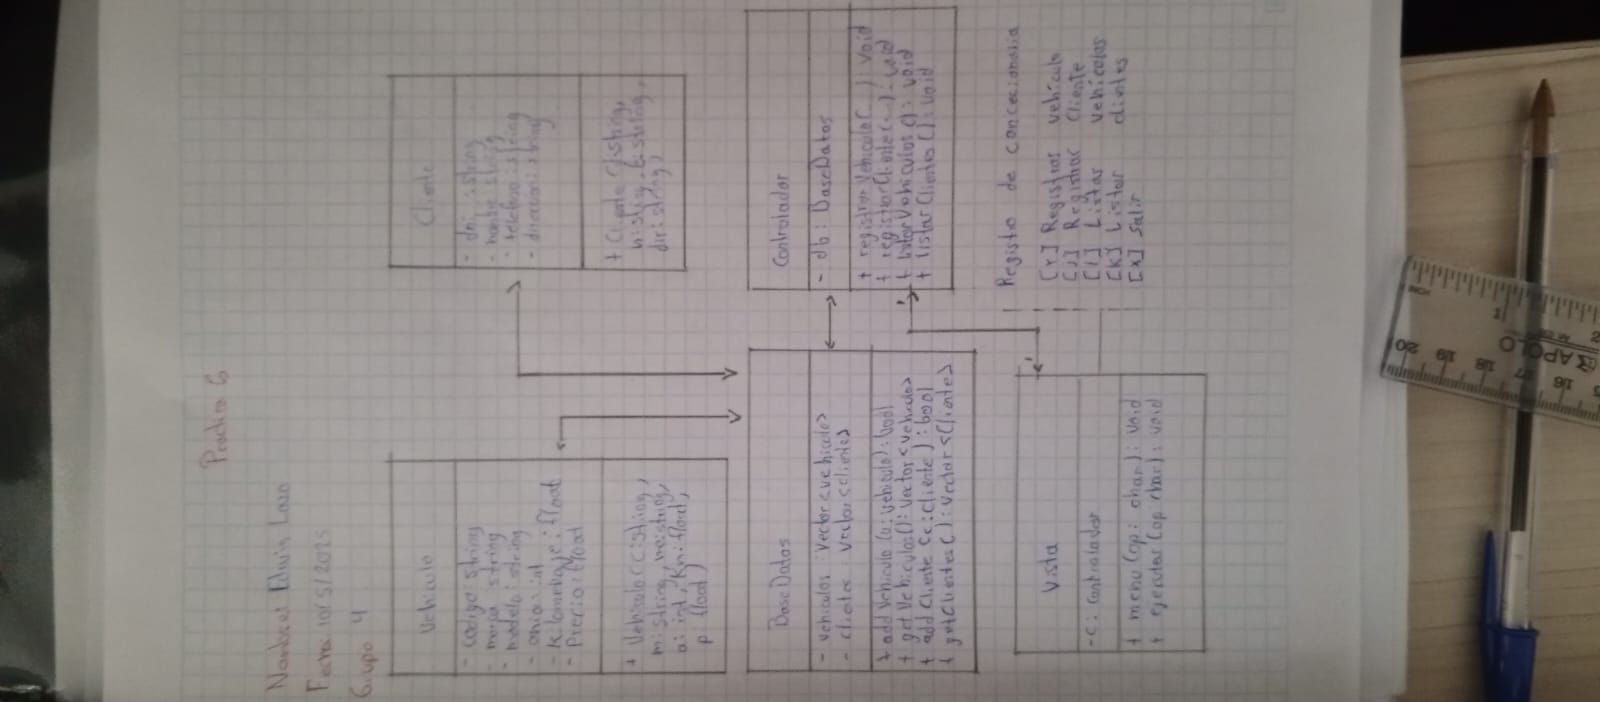 Practica 6
Nombre: Edwin Lazo
Fecha: 10/5/2025
Grupo 4
Vehiculo
- codigo: string
- marca: string
- modelo: string
- anio: int
- kilometraje: float
- Precio: float
+ Vehiculo(c:string,
m:string, mo:string,
a: int, km: float,
p float)
Cliente
- dni: string
- nombre: string
- telefono: string
- direccion: string
+ Cliente
dir: string)
BaseDatos
- vehiculos: Vector<vehiculo>
- clientes: Vector<cliente>
+ add Vehiculo (v:vehiculo): bool
+ get Vehiculos(): Vector<vehiculo>
+ add Cliente (c:cliente): bool
+ getClientes(): Vector<Cliente>
Controlador
- db: BaseDatos
+ registrarVehiculo(...): Void
+ registrarCliente(...): void
+ listarVehiculos(): void
+ listarClientes(): Void
Vista
- c: Controlador
+ menu (op: char): Void
+ ejecutar (op char): void
Registro de concecionaria
[Y] Registrar vehículo
[J] Registrar Cliente
[I] Listar vehículos
[K] Listar clintes
[X] Salir
APOLO
20 19 18 17 16
1 2